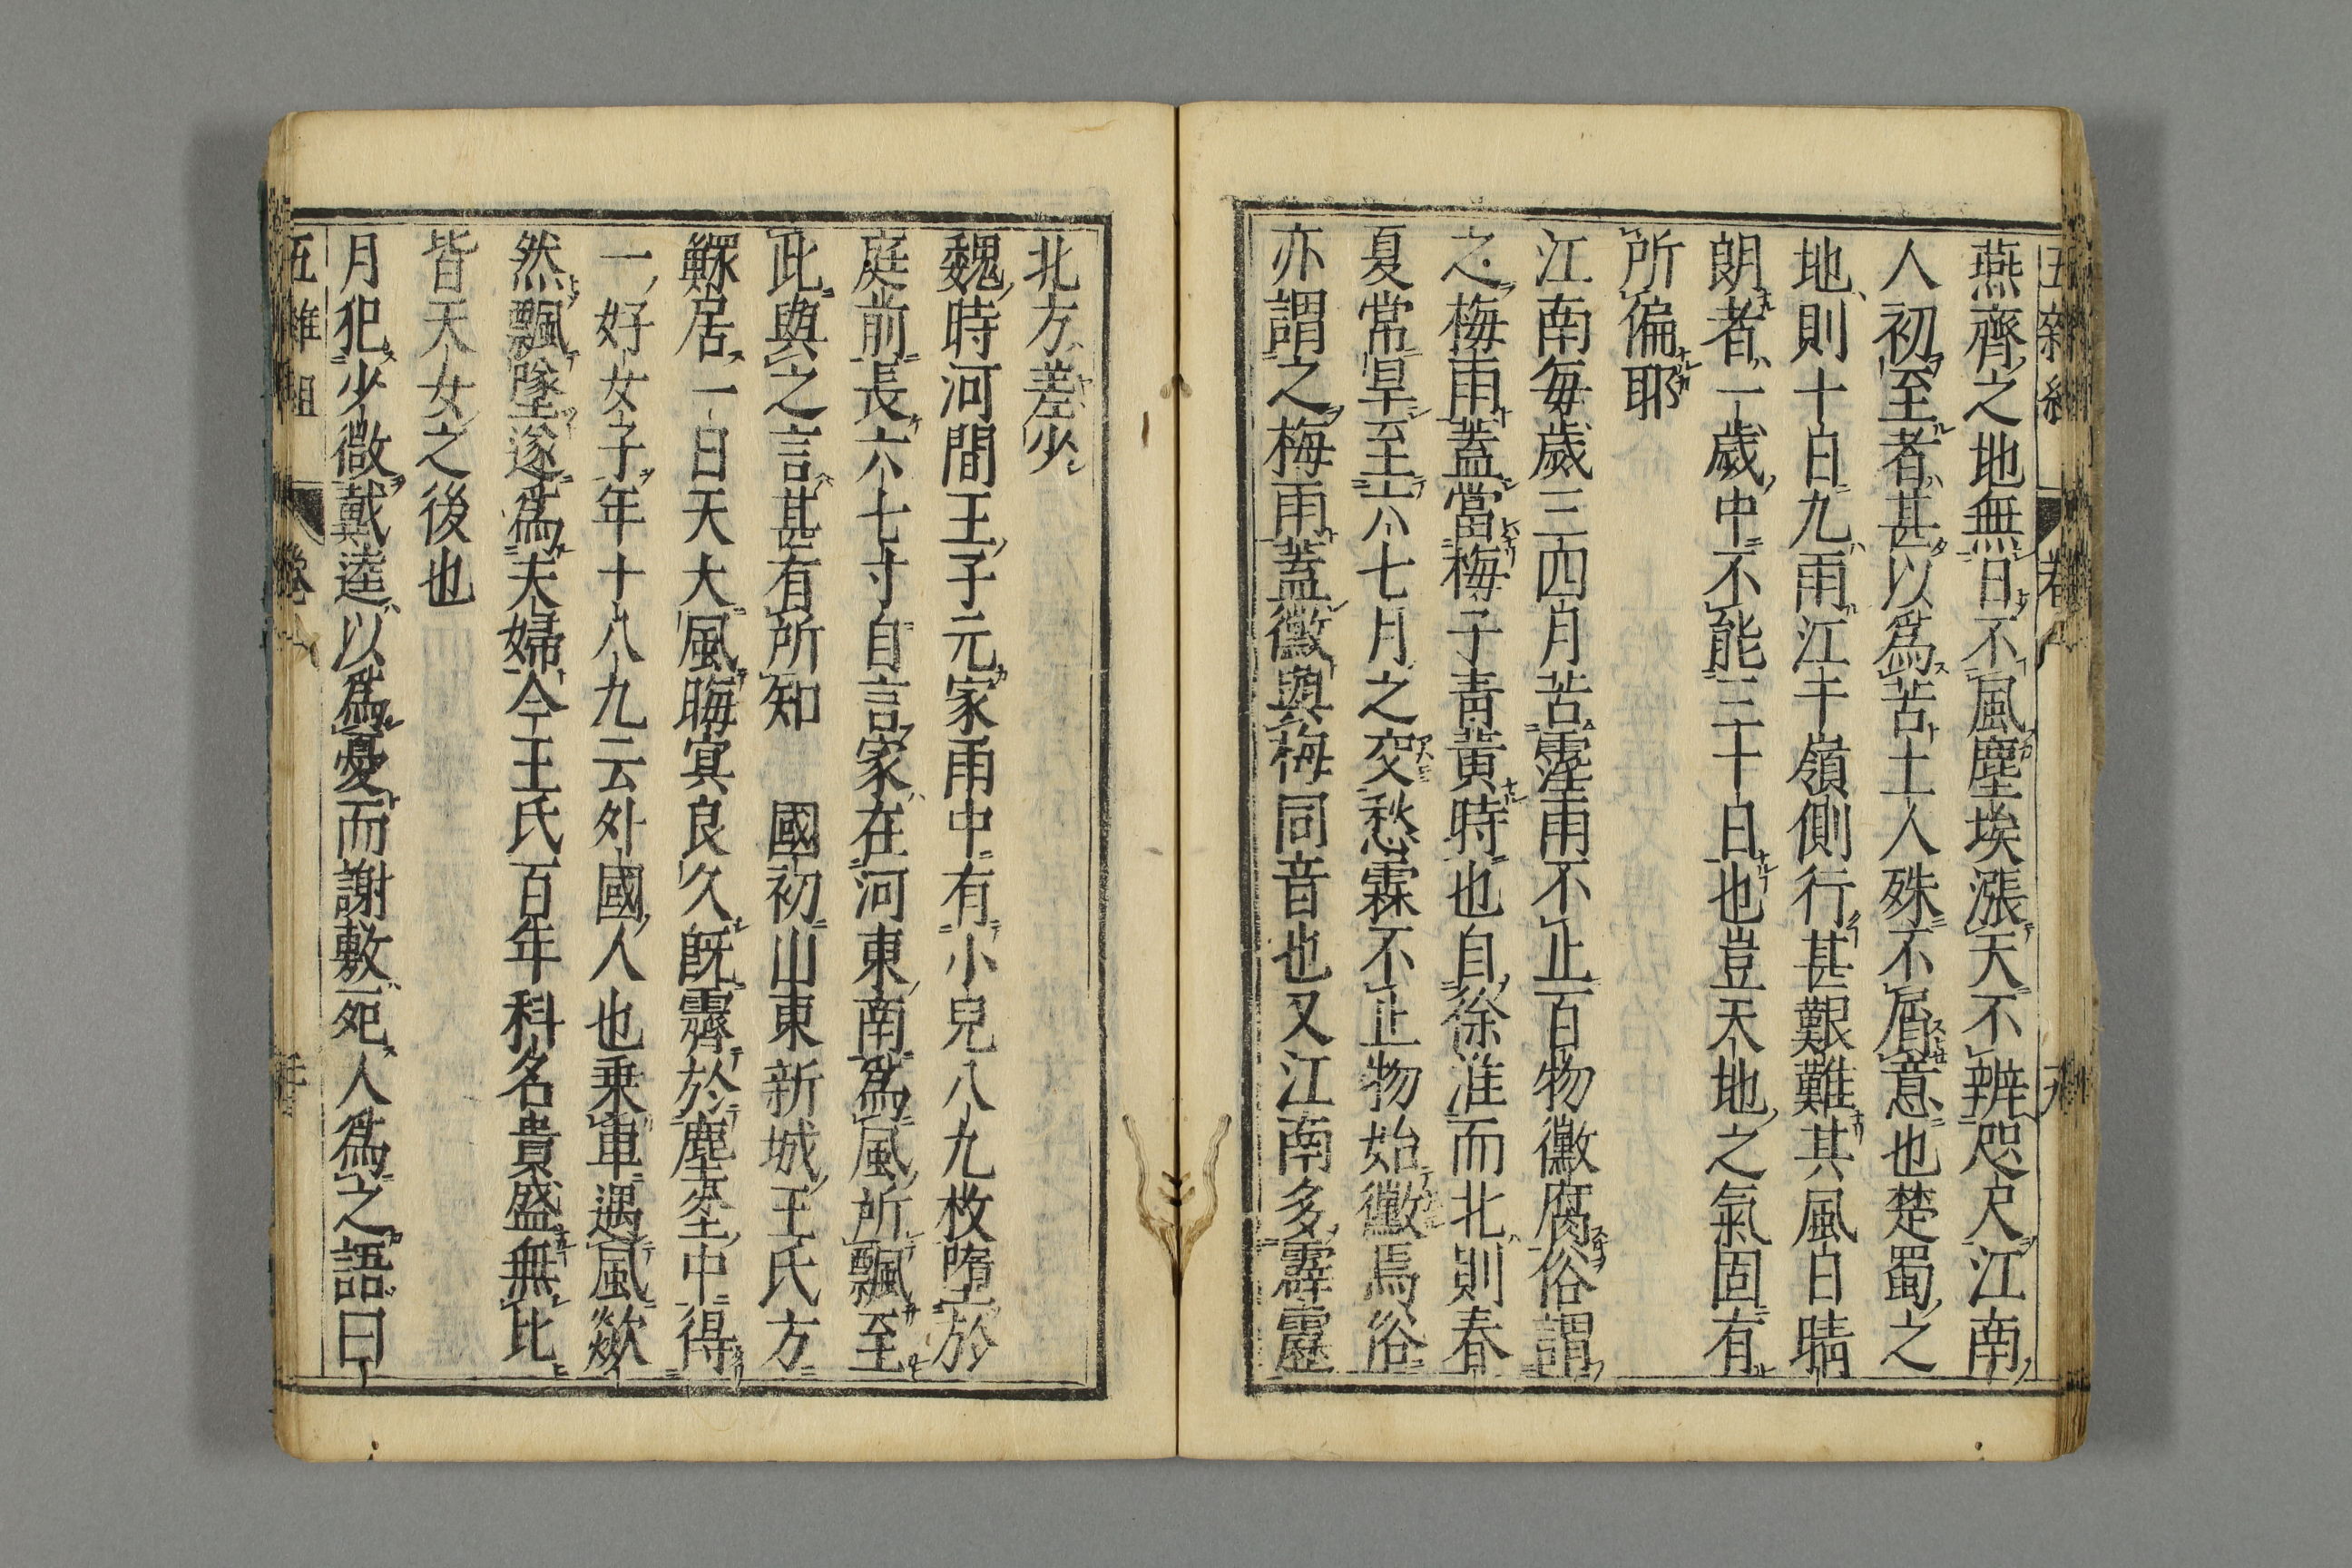 燕齊之地無日不風塵埃漲天不辨咫尺江南
人初至者甚以爲苦土人殊不屑意也楚蜀之
地則十日九雨江干嶺側行甚艱難其風日晴
朗者一歲中不能三十日也豈天地之氣固有
所偏耶
江南每歲三四月苦霪雨不止百物黴腐俗謂
之梅雨蓋當梅子青黃時也自徐淮而北則春
夏常旱至六七月之交愁霖不止物始黴焉俗
亦謂之梅雨蓋黴與梅同音也又江南多霹靂
北方差少
魏時河間王子元家雨中有小兒八九枚墮於
庭前長六七寸自言家在河東南爲風所飄至
此與之言甚有所知　國初山東新城王氏方
鰥居一日天大風晦冥良久既霽於塵坌中得
一好女子年十八九云外國人也乗車遇風欻
然飄墜遂爲夫婦今王氏百年科名貴盛無比
皆天女之後也
月犯少微戴逵以爲憂而謝敷死人爲之語曰
五雜組